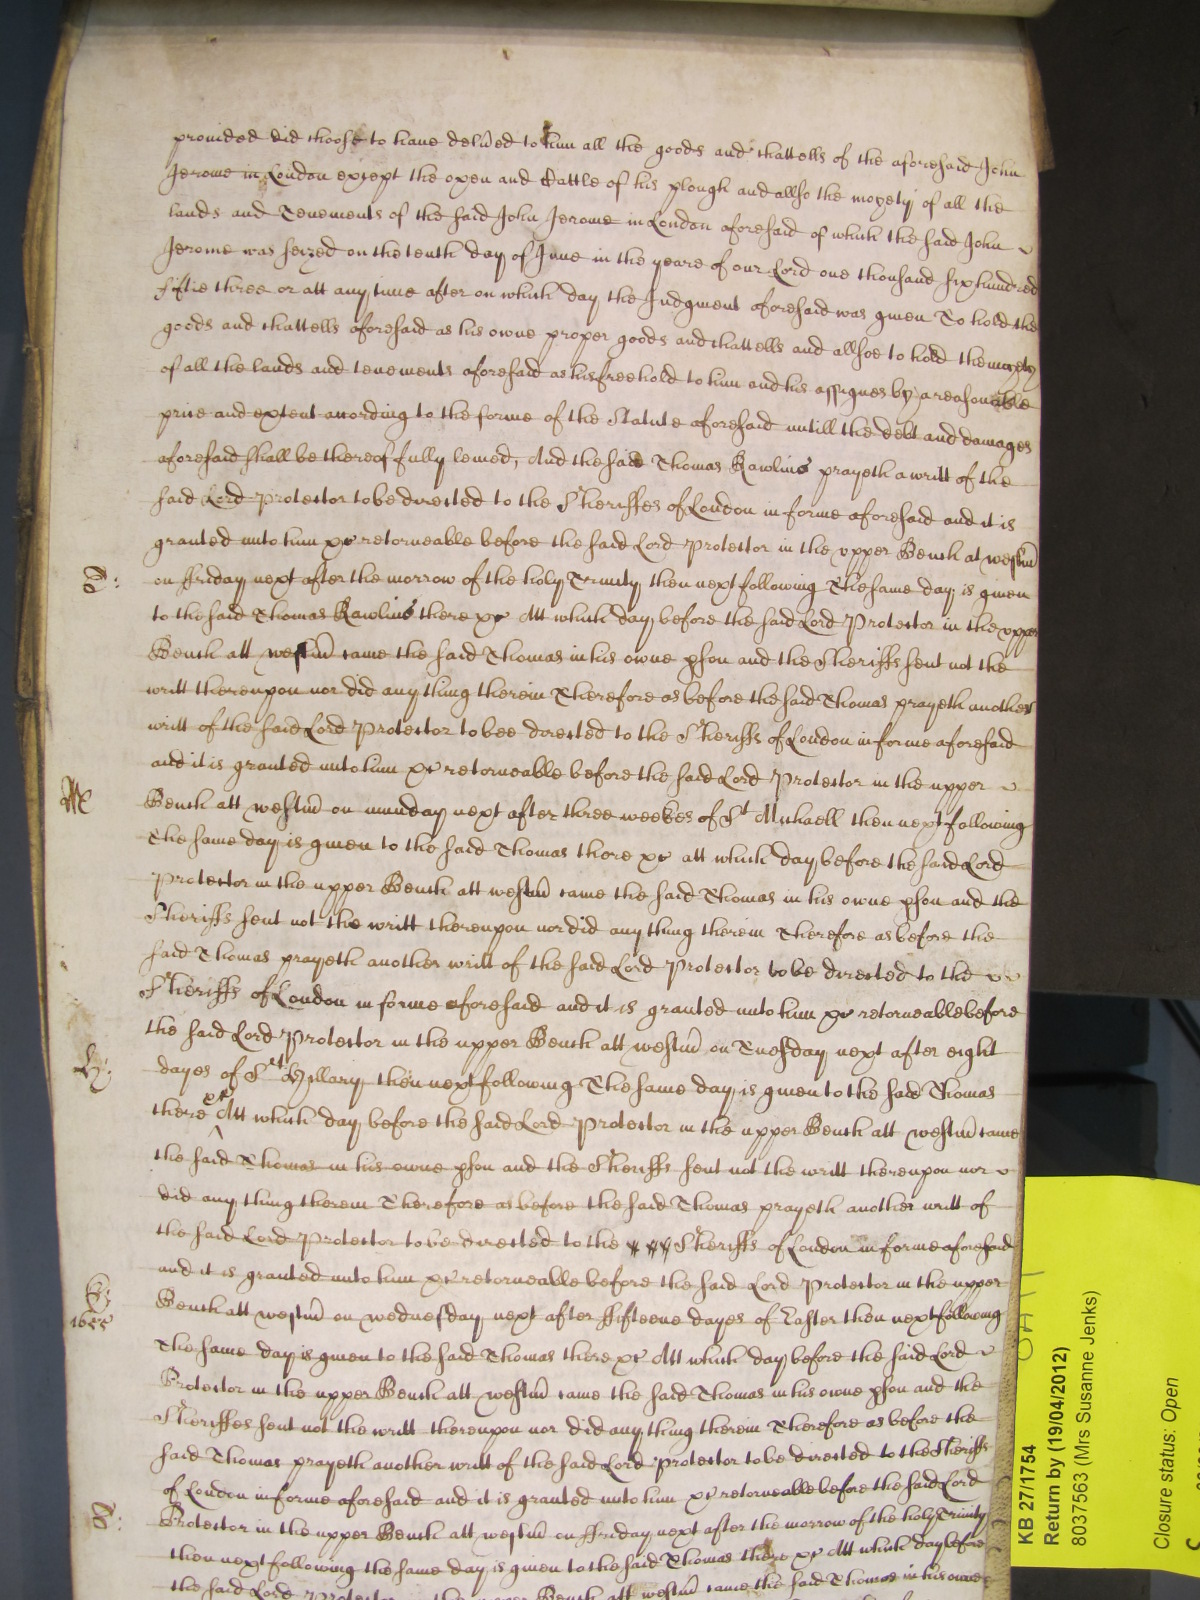 provided did choose to have deliũed to him all the goods and chattells of the aforesaid John
Jerome in London except the oxen and Cattle of his plough and allso the moyety of all the
lands and Tenements of the said John Jerome in London aforesaid of which the said John
Jerome was seized on the tenth day of June in the yeare of our Lord one thousand six hundred
fiftie three or att any time after on which day the Judgment aforesaid was given To hold the
goods and chattells aforesaid as his owne proper goods and chattells and allsoe to hold the moyety
of all the lands and tenements aforesaid as his freehold to him and his assignes by a reasonable
price and extent according to the forme of the Statute aforesaid untill the debt and damages
aforesaid shall be thereof fully levied, And the said Thomas Rawlins prayeth a writt of the
said Lord Protector to be directed to the Sheriffes of London in forme aforesaid and it is
granted unto him &c retorneable before the said Lord Protector in the upper Bench at westm̃
T: on ffriday next after the morrow of the holy Trinity then next following The same day is given
to the said Thomas Rawlins there &c Att which day before the said Lord Protector in the upper
Bench att westm̃ came the said Thomas in his owne pson and the Sheriffs sent not the
writt thereupon nor did any thing therein Therefore as before the said Thomas prayeth another
writt of the said Lord Protector to bee directed to the Sheriffs of London in forme aforesaid
and it is granted unto him &c retorneable before the said Lord Protector in the upper
M Bench att westm̃ on munday next after three weekes of St Michaell then next following
The same day is given to the said Thomas there &c att which day before the said Lord
Protector in the upper Bench att westm̃ came the said Thomas in his owne pson and the
Sheriffs sent not the writt thereupon nor did any thing therein Therefore as before the
said Thomas prayeth another writt of the said Lord Protector to be directed to the
Sheriffs of London in forme aforesaid and it is granted unto him &c retorneable before
the said Lord Protector in the upper Bench att westm̃ on Tuesday next after eight
H: dayes of St Hillary then next following The same day is given to the said Thomas
there &c Att which day before the said Lord Protector in the upper Bench att westm̃ came
the said Thomas in his owne pson and the Sheriffs sent not the writt thereupon nor
did any thing therein Therefore as before the said Thomas prayeth another writt of
the said Lord Protector to be directed to the Sheriffs of London in forme aforesaid
and it is granted unto him &c retorneable before the said Lord Protector in the upper
E: 1655 Bench att westm̃ on wednesday next after ffifteene dayes of Easter then next following
The same day is given to the said Thomas there &c Att which day before the said Lord
Protector in the upper Bench att westm̃ came the said Thomas in his owne pson and the
Sheriffes sent not the writt thereupon nor did any thing therein Therefore as before the
said Thomas prayeth another writt of the said Lord Protector to be directed to the Sheriffs
of London in forme aforesaid and it is granted unto him &c retorneable before the said Lord
T: Protector in the upper Bench att westm̃ on ffriday next after the morrow of the holy Trinity
then next following the same day is given to the said Thomas there &c Att which day before
the said Lord Protector in the upper Bench att westm̃ came the said Thomas in his owne
KB 27/1754
Return by (19/04/2012)
8037563 (Mrs Susanne Jenks)
Closure status: Open